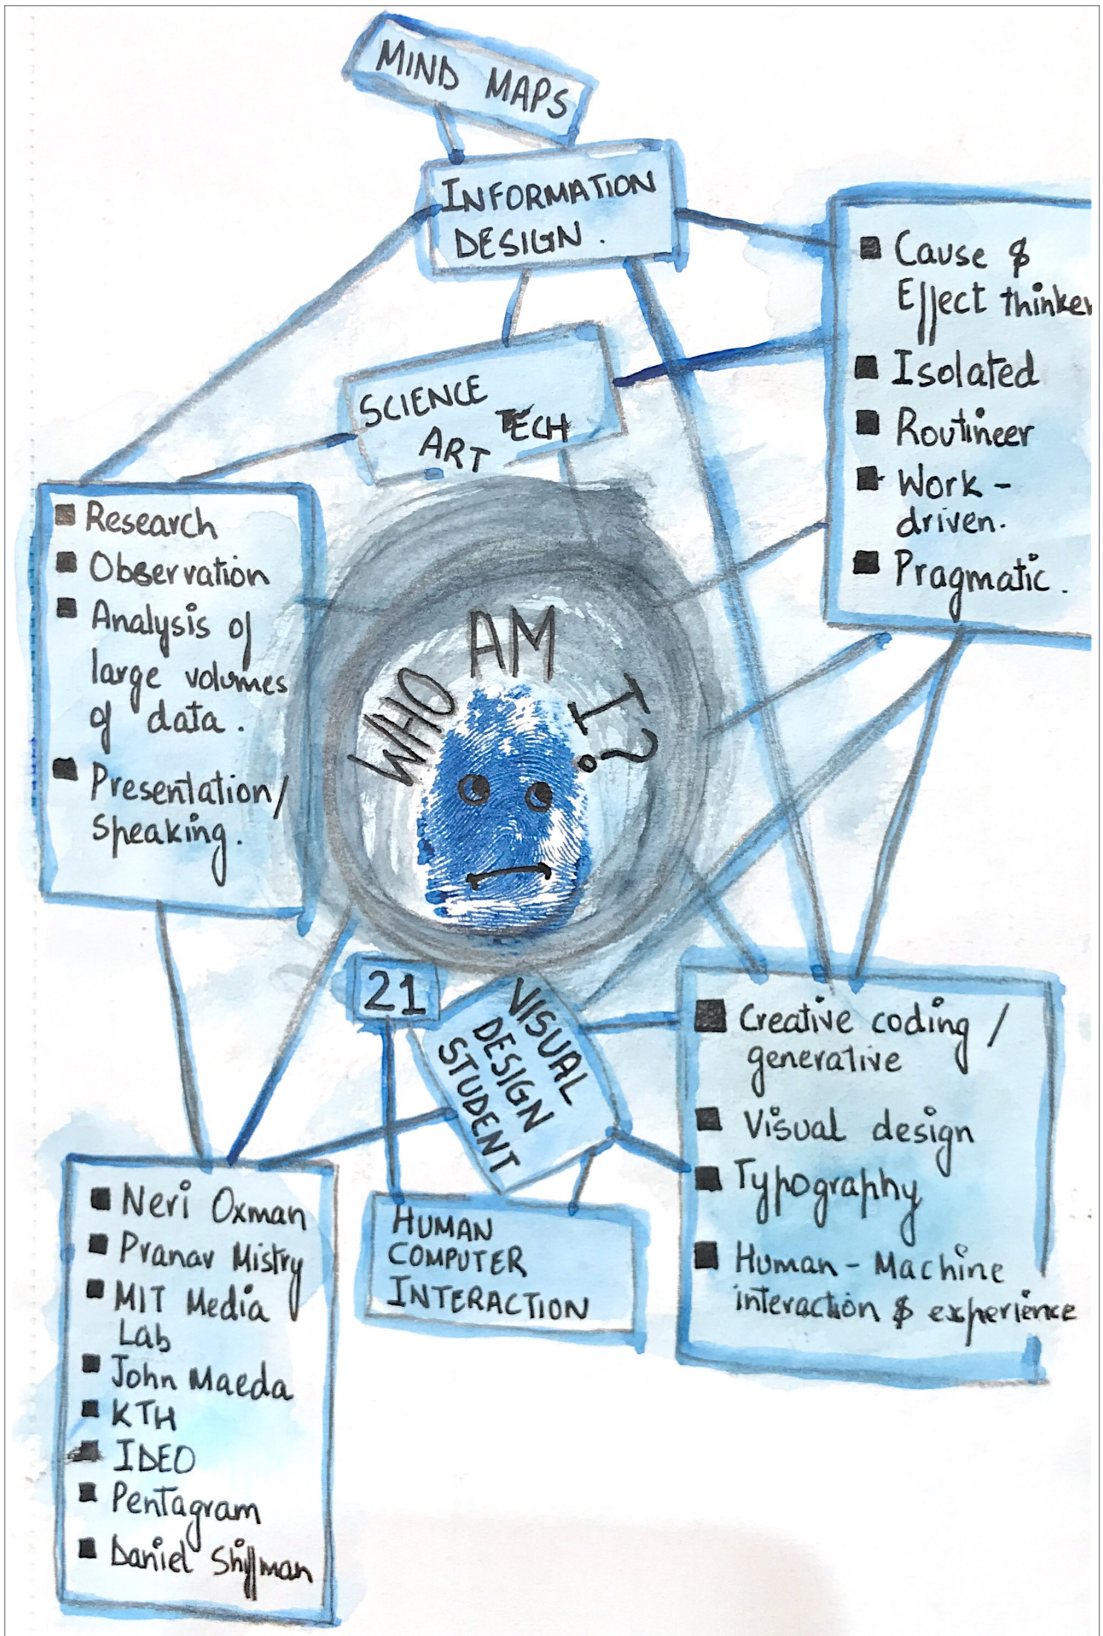 MIND MAPS
INFORMATION
DESIGN.
Cause &
Effect thinker
Isolated
Routineer
Work-
driven.
Pragmatic.
SCIENCE
TECH
ART
Research
Observation
Analysis of
large volumes
of data.
Presentation/
speaking.
WHO AM I?
21
VISUAL
DESIGN
STUDENT
Creative coding /
generative
Visual design
Typography
Human-Machine
interaction & experience
HUMAN
COMPUTER
INTERACTION
Neri Oxman
Pranav Mistry
MIT Media
Lab
John Maeda
KTH
IDEO
Pentagram
Daniel Shiffman